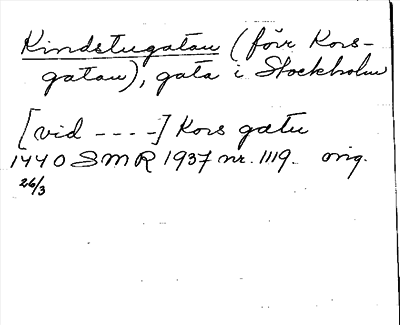 Kindstugatan (förr Kors-
gatan), gata i Stockholm
[vid ----] Kors gatu
1440 SMR 1937 nr. 1119. orig.
26/3